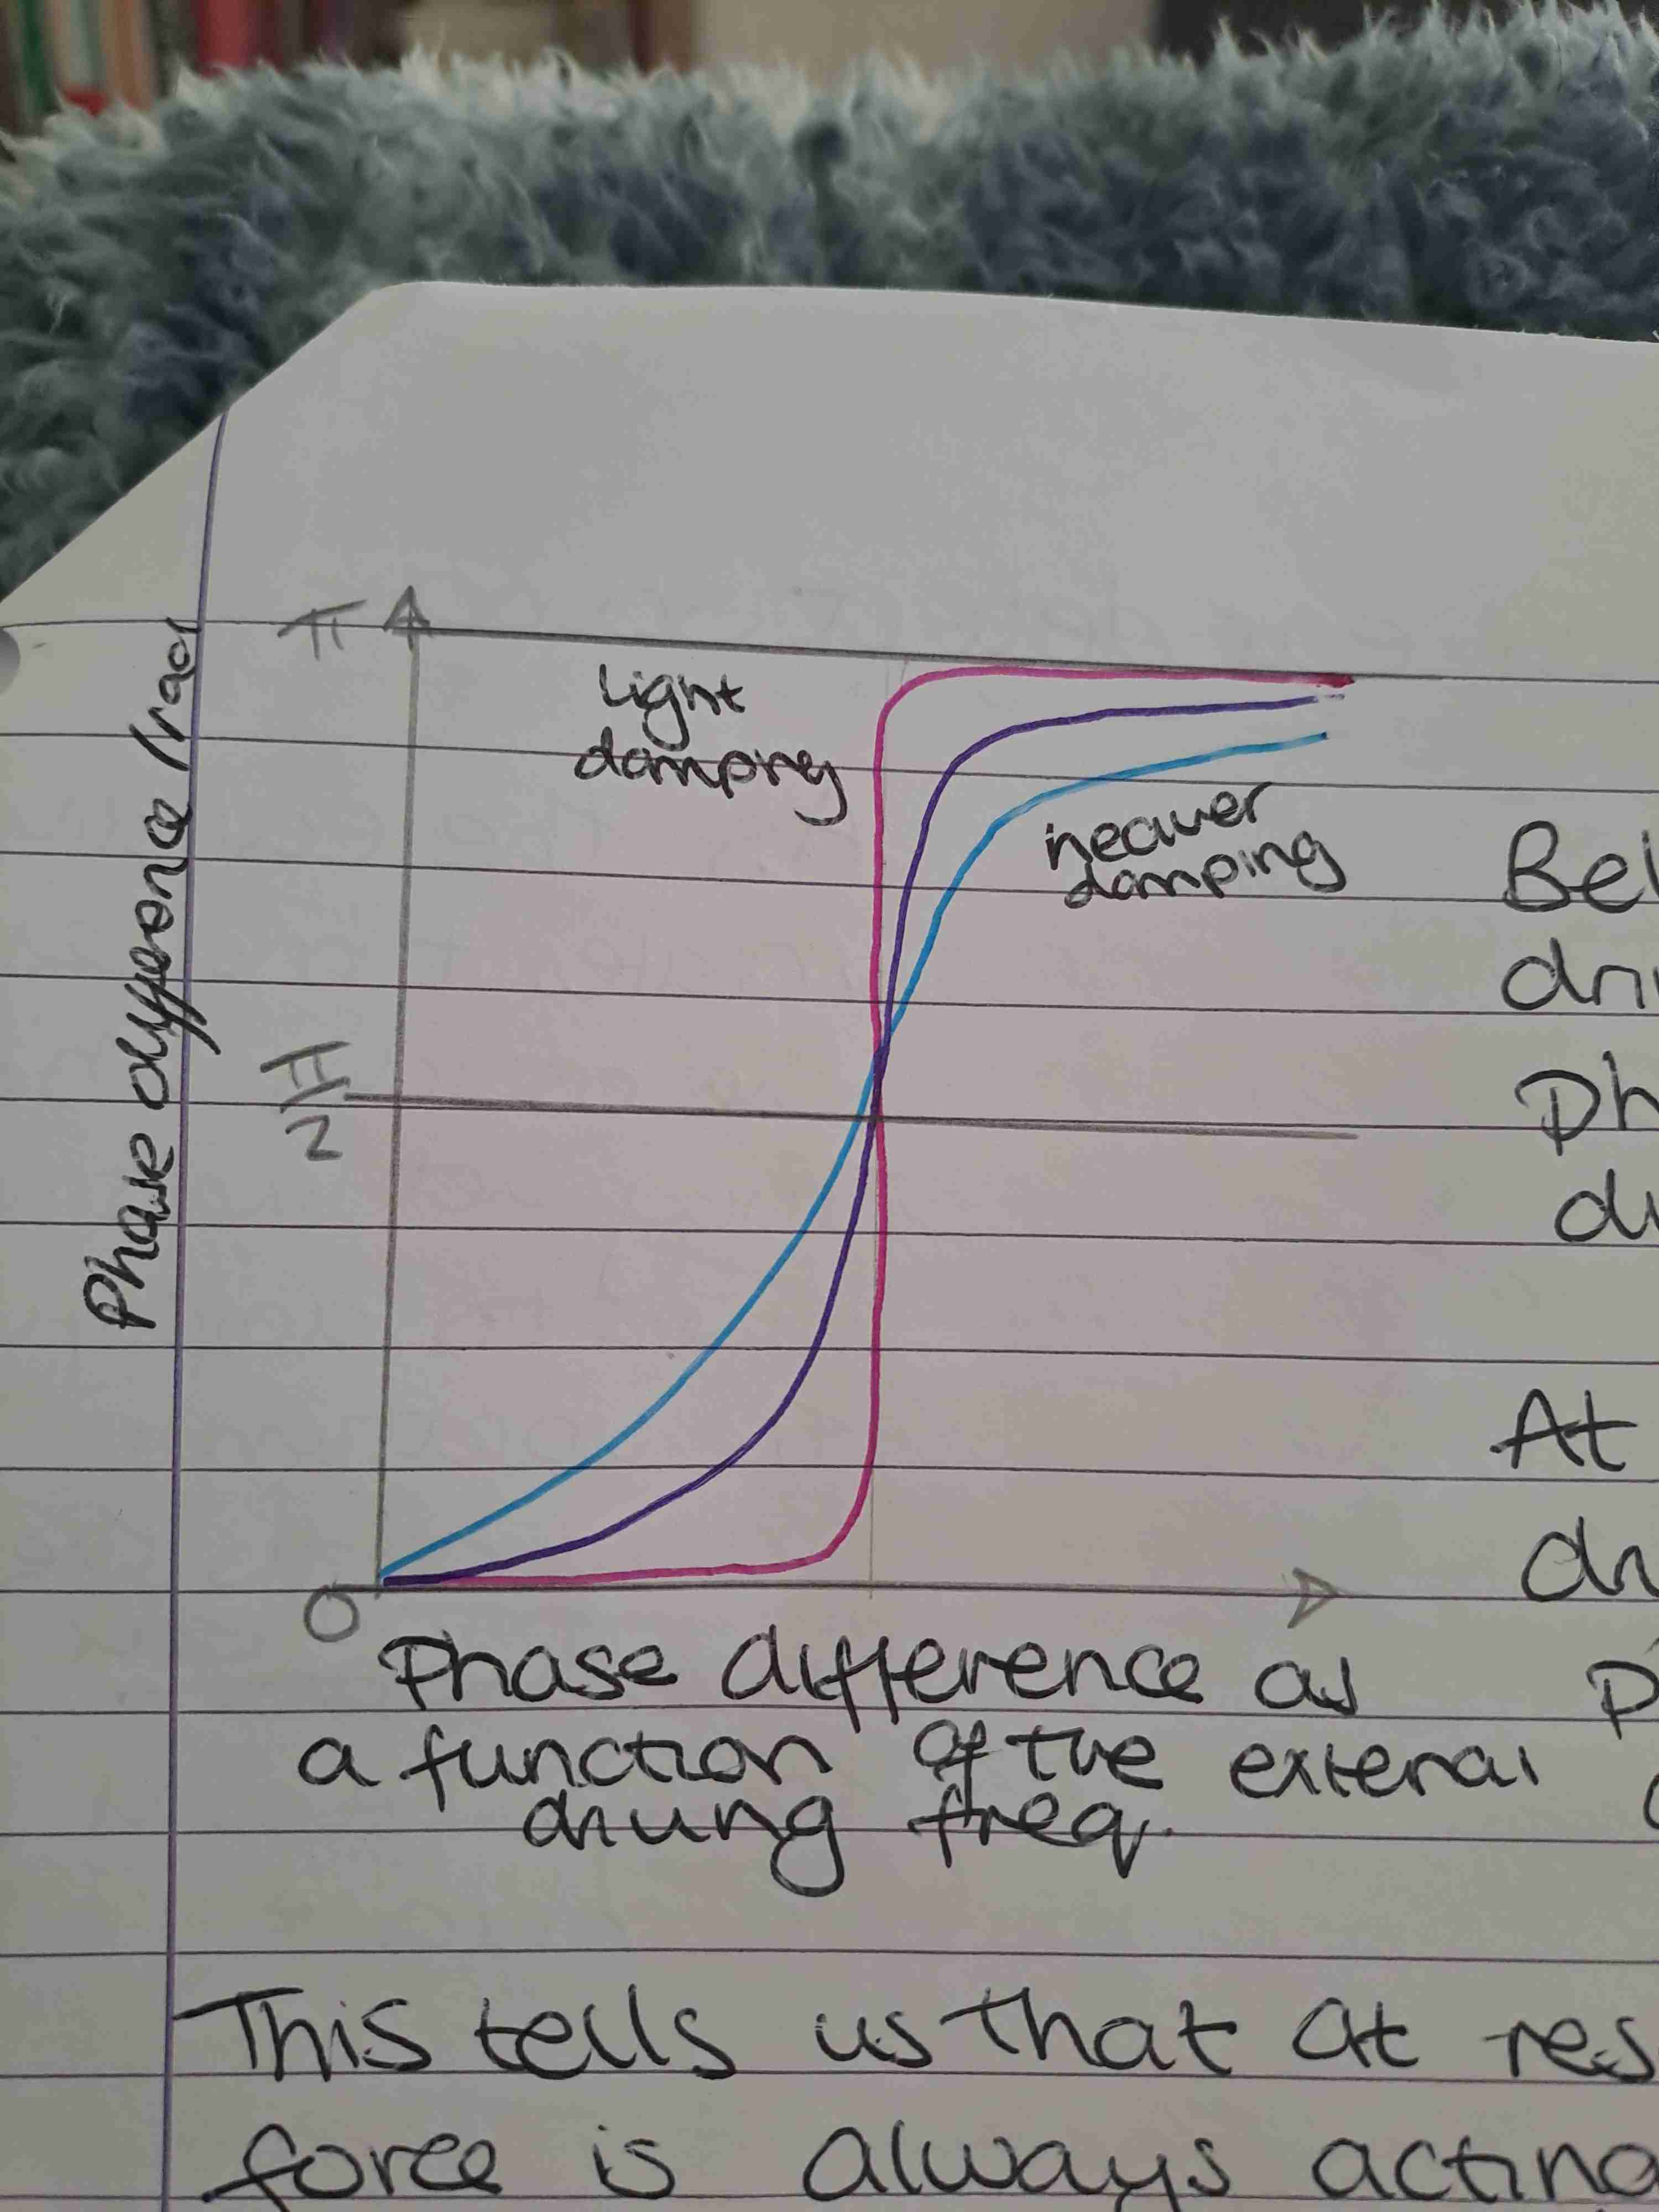 π
Light
damping
heavier
damping
Phase difference /rad
π/2
0
Bel
dri
Ph
di
At
dri
P
Phase difference as
a function of the external
driving freq.
This tells us that at res
force is always acting